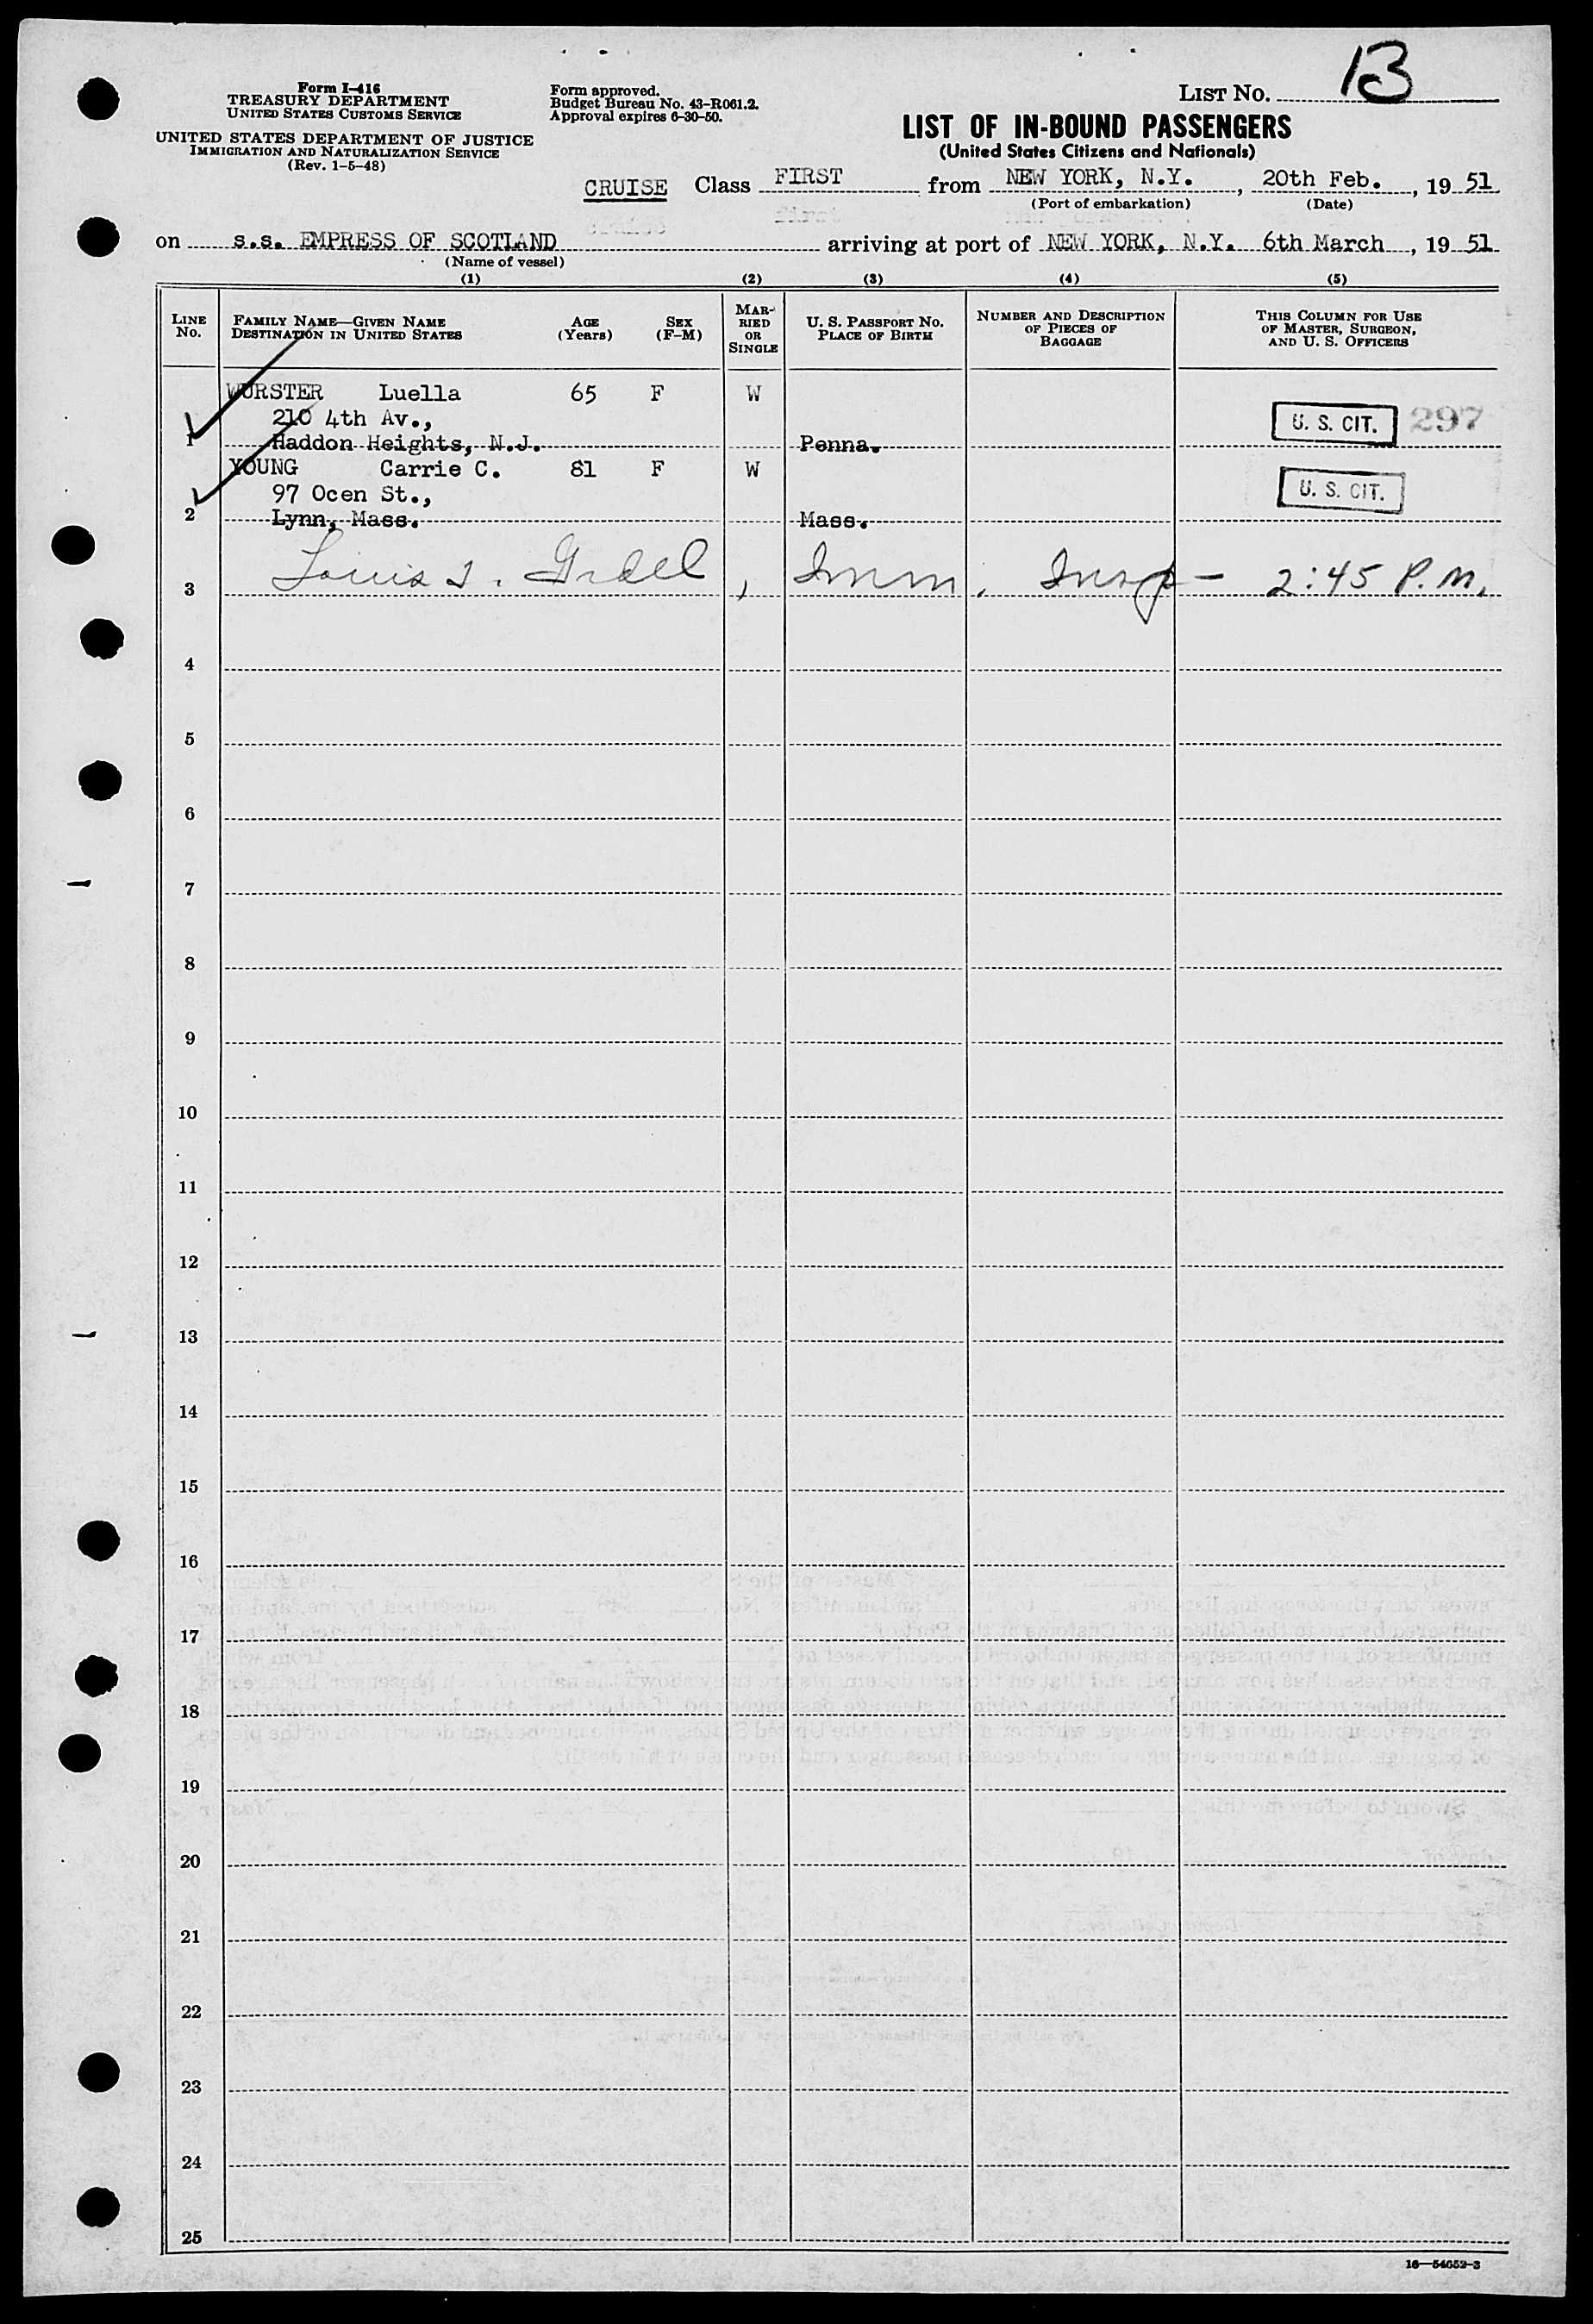 13
Form I-416
TREASURY DEPARTMENT
UNITED STATES CUSTOMS SERVICE
UNITED STATES DEPARTMENT OF JUSTICE
IMMIGRATION AND NATURALIZATION SERVICE
(Rev. 1-5-48)
Form approved.
Budget Bureau No. 43-R061.2.
Approval expires 6-30-50.
LIST NO.
LIST OF IN-BOUND PASSENGERS
(United States Citizens and Nationals)
CRUISE Class FIRST from NEW YORK, N.Y. , 20th Feb. , 19 51
(Port of embarkation) (Date)
on s.s. EMPRESS OF SCOTLAND arriving at port of NEW YORK, N.Y. 6th March , 19 51
(Name of vessel)
(1) (2) (3) (4) (5)
LINE NO.
FAMILY NAME—GIVEN NAME
DESTINATION IN UNITED STATES
AGE (Years)
SEX (F-M)
MARRIED OR SINGLE
U. S. PASSPORT NO.
PLACE OF BIRTH
NUMBER AND DESCRIPTION OF PIECES OF BAGGAGE
THIS COLUMN FOR USE OF MASTER, SURGEON, AND U. S. OFFICERS
WURSTER Luella 65 F W
210 4th Av., U. S. CIT. 297
1 Haddon Heights, N.J. Penna.
YOUNG Carrie C. 81 F W
97 Ocen St., U. S. CIT.
2 Lynn, Mass. Mass.
3 Louis , Imm. Insp - 2:45 P.M.
4
5
6
7
8
9
10
11
12
13
14
15
16
17
18
19
20
21
22
23
24
25
16—54652-3